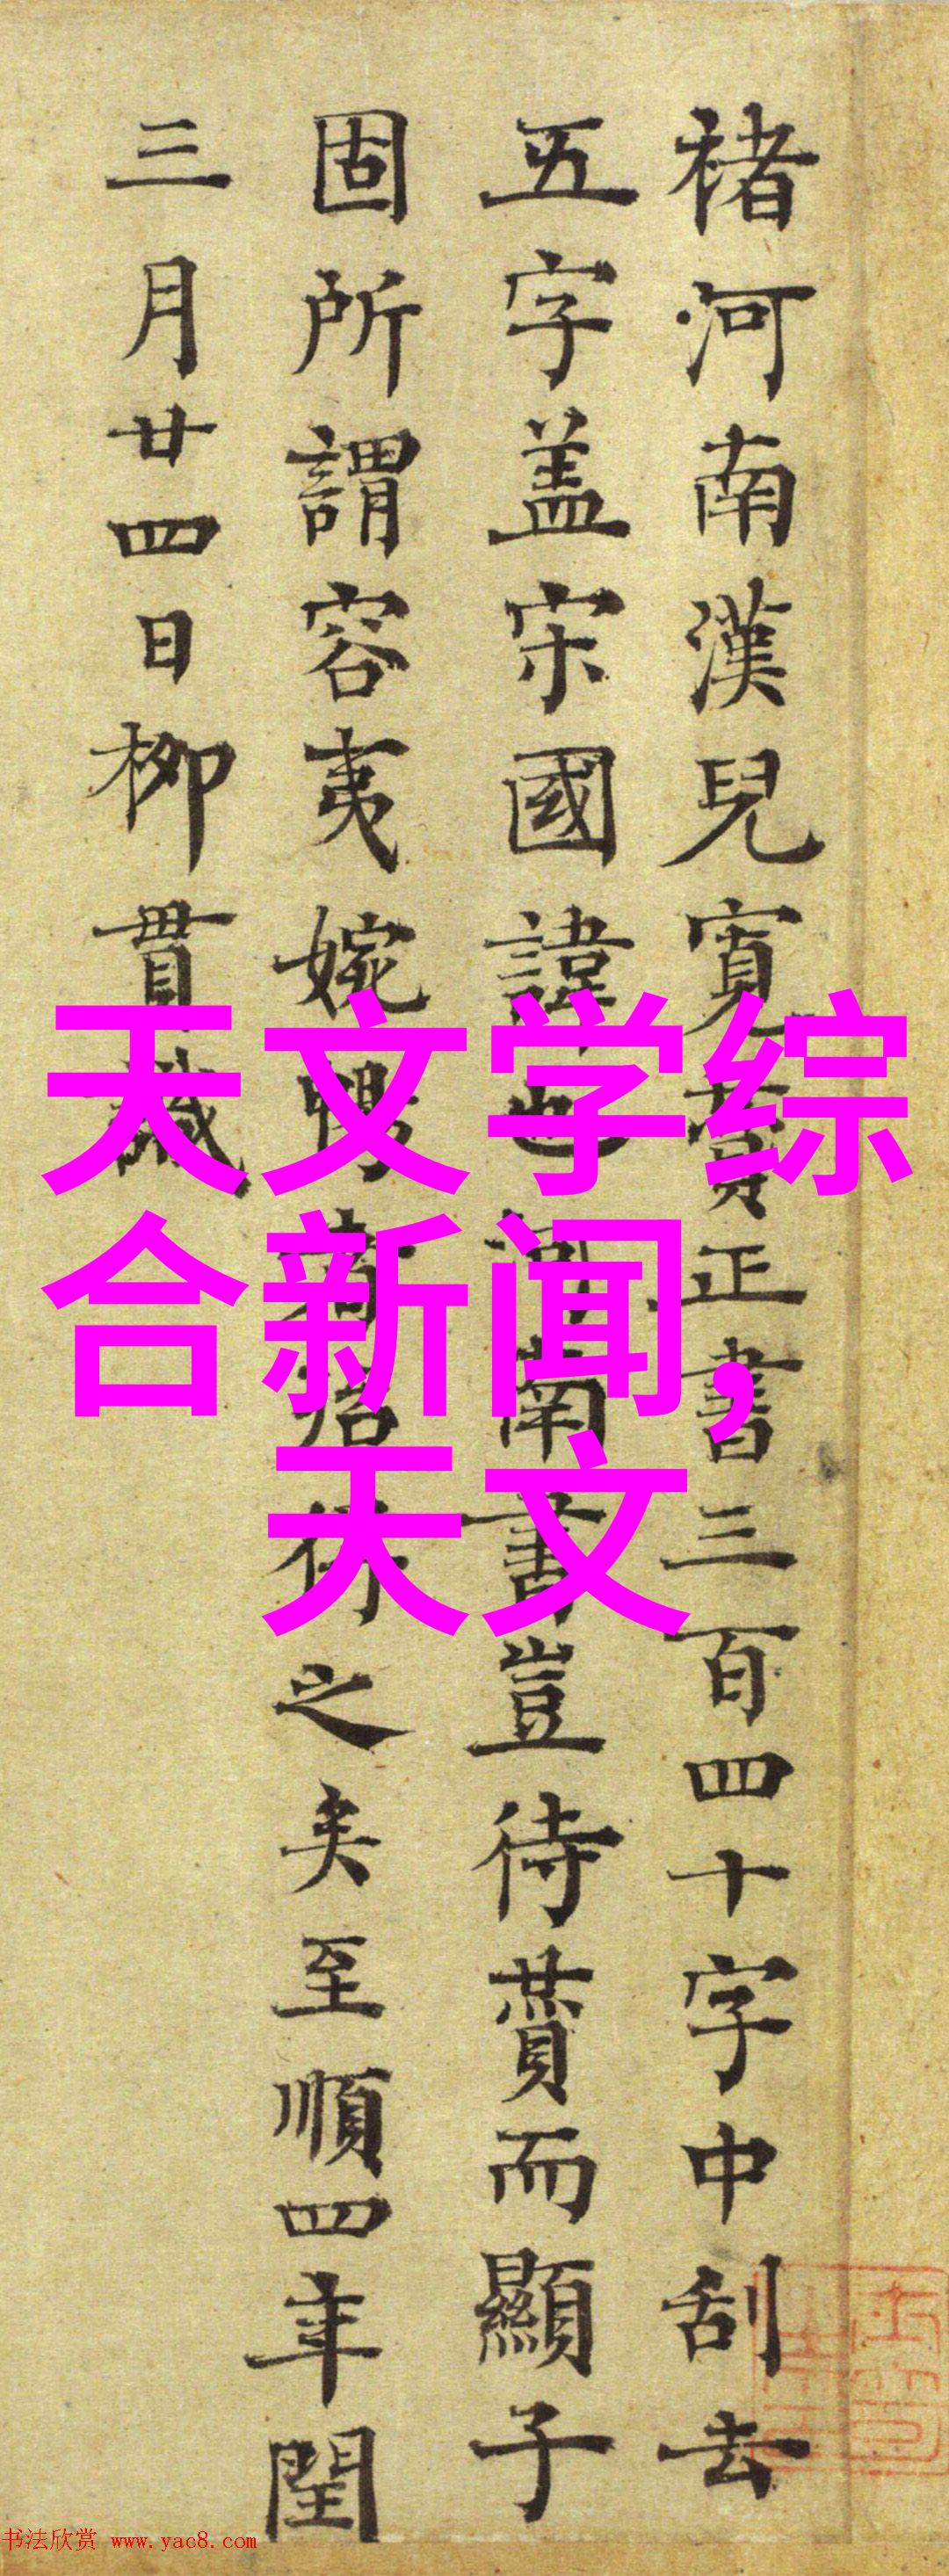 褚河南漢兒寬贊正書三百四十字中刮去
五字盖宋國諱也河南書豈待贊而顯子
固所謂容夷婉暢者得之矣至順四年閏
三月廿四日柳貫識
天文学综
合新闻,
天文
书法欣赏 www.yac8.com